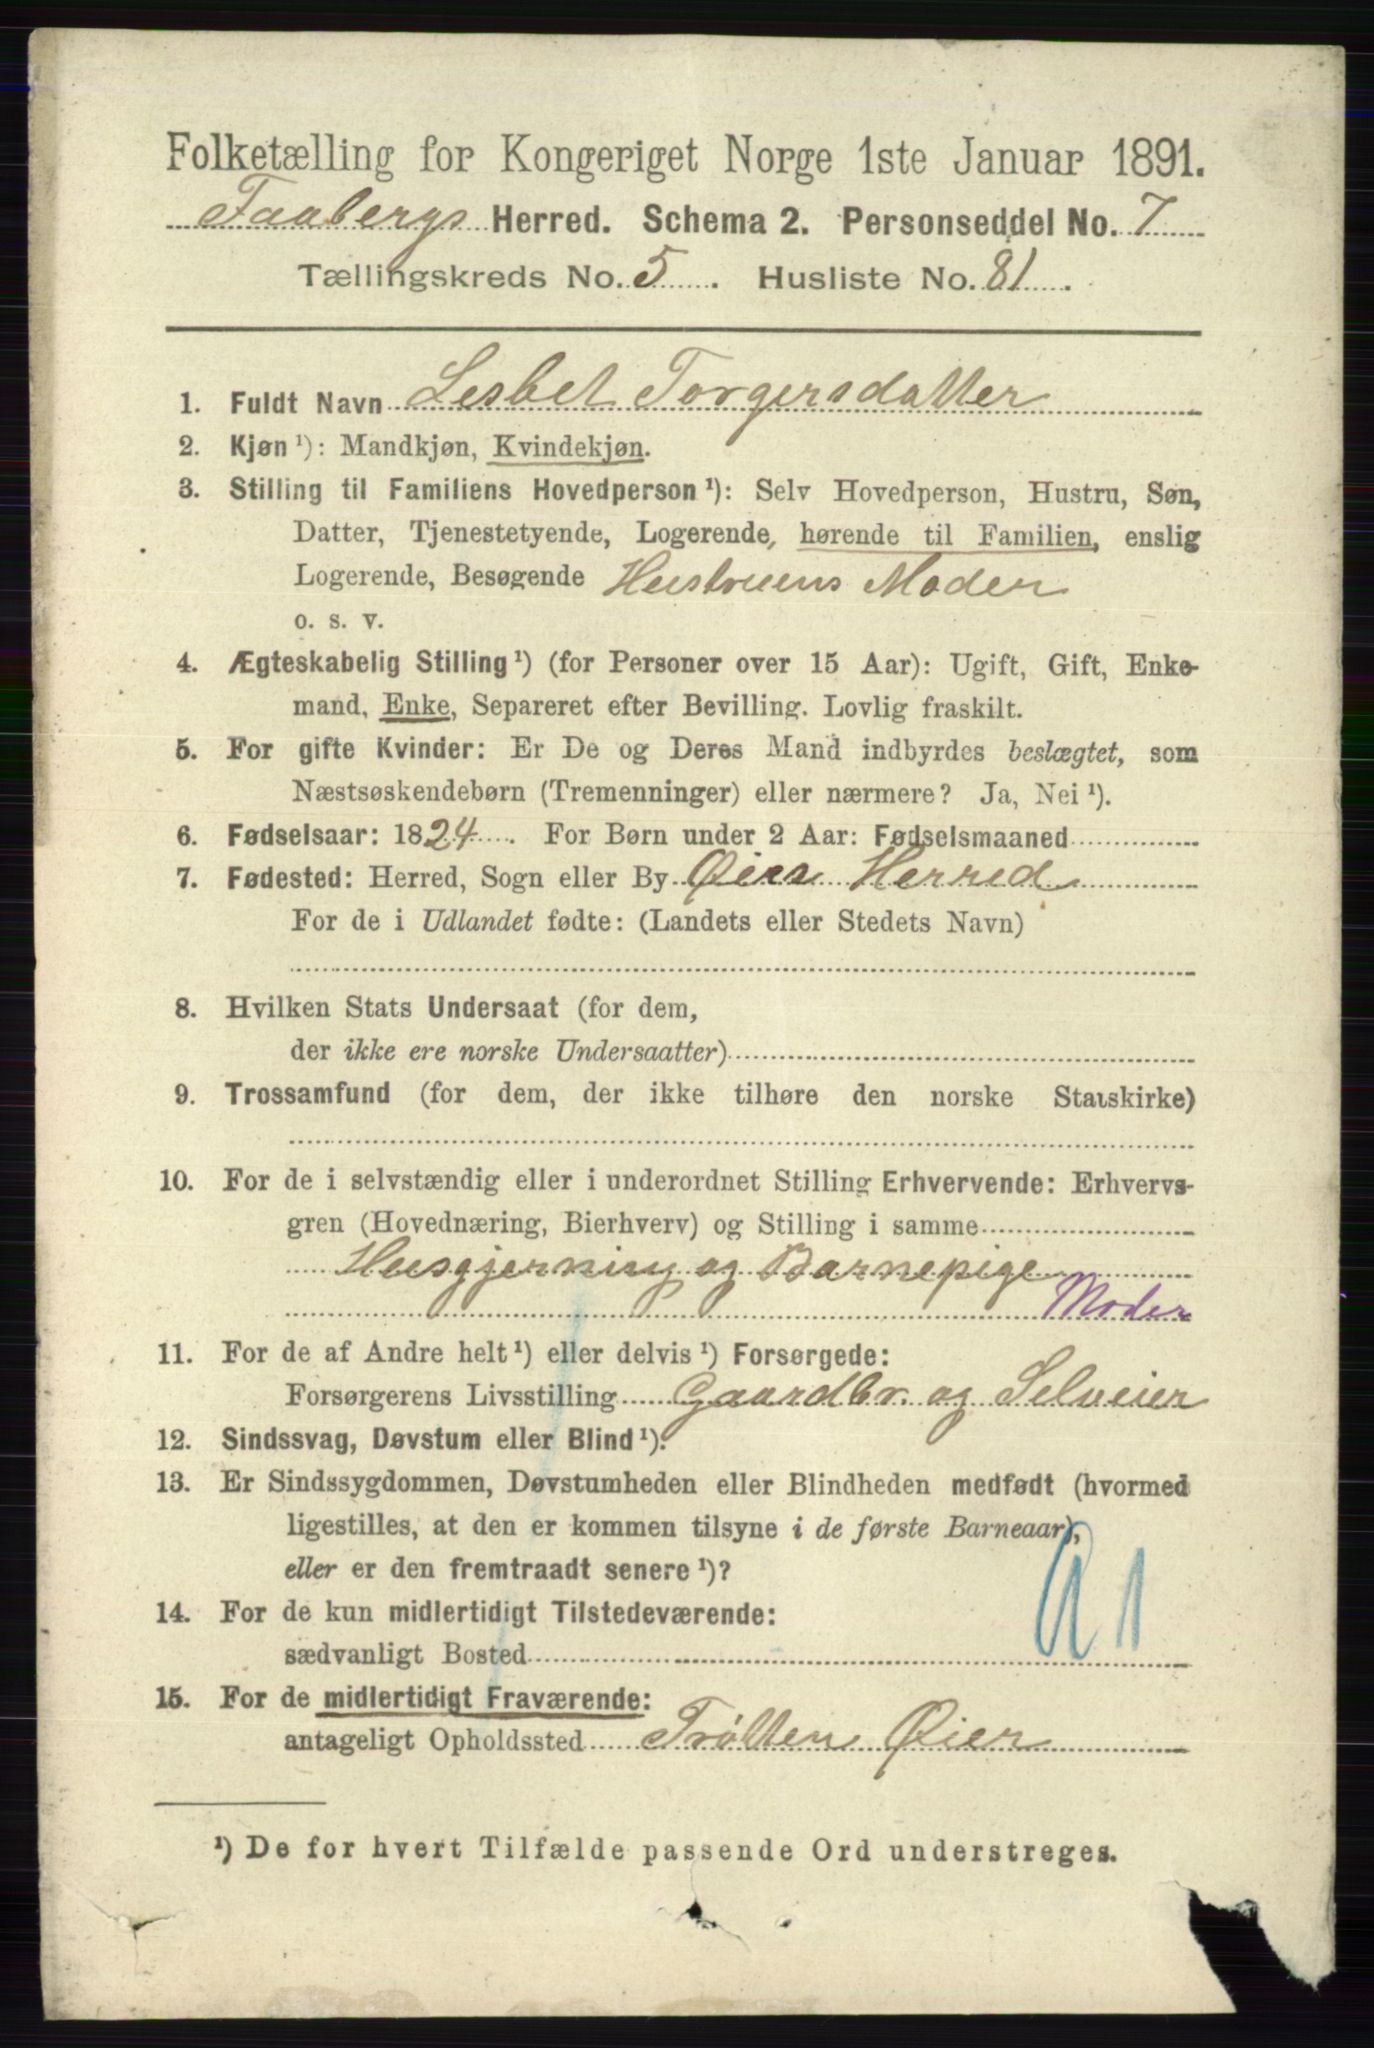 Folketælling for Kongeriget Norge 1ste Januar 1891.
Faabergs Herred. Schema 2. Personseddel No. 7
Tællingskreds No. 5. Husliste No. 81.
1. Fuldt Navn Lesbet Torgersdatter
2. Kjøn ¹): Mandkjøn, Kvindekjøn.
3. Stilling til Familiens Hovedperson ¹): Selv Hovedperson, Hustru, Søn,
Datter, Tjenestetyende, Logerende, hørende til Familien, enslig
Logerende, Besøgende Hustruens Moder
o. s. v.
4. Ægteskabelig Stilling ¹) (for Personer over 15 Aar): Ugift, Gift, Enke-
mand, Enke, Separeret efter Bevilling. Lovlig fraskilt.
5. For gifte Kvinder: Er De og Deres Mand indbyrdes beslægtet, som
Næstsøskendebørn (Tremenninger) eller nærmere? Ja, Nei ¹).
6. Fødselsaar: 1824. For Børn under 2 Aar: Fødselsmaaned
7. Fødested: Herred, Sogn eller By Øiers Herred
For de i Udlandet fødte: (Landets eller Stedets Navn)
8. Hvilken Stats Undersaat (for dem,
der ikke ere norske Undersaatter)
9. Trossamfund (for dem, der ikke tilhøre den norske Statskirke)
10. For de i selvstændig eller i underordnet Stilling Erhvervende: Erhvervs-
gren (Hovednæring, Bierhverv) og Stilling i samme
Husgjerning og Barnepige
Moder
11. For de af Andre helt ¹) eller delvis ¹) Forsørgede:
Forsørgerens Livsstilling Gaardbr. og Selveier
12. Sindssvag, Døvstum eller Blind ¹).
13. Er Sindssygdommen, Døvstumheden eller Blindheden medfødt (hvormed
ligestilles, at den er kommen tilsyne i de første Barneaar),
eller er den fremtraadt senere ¹)?
14. For de kun midlertidigt Tilstedeværende:
sædvanligt Bosted
15. For de midlertidigt Fraværende:
antageligt Opholdssted Trôtten Øier
¹) De for hvert Tilfælde passende Ord understreges.